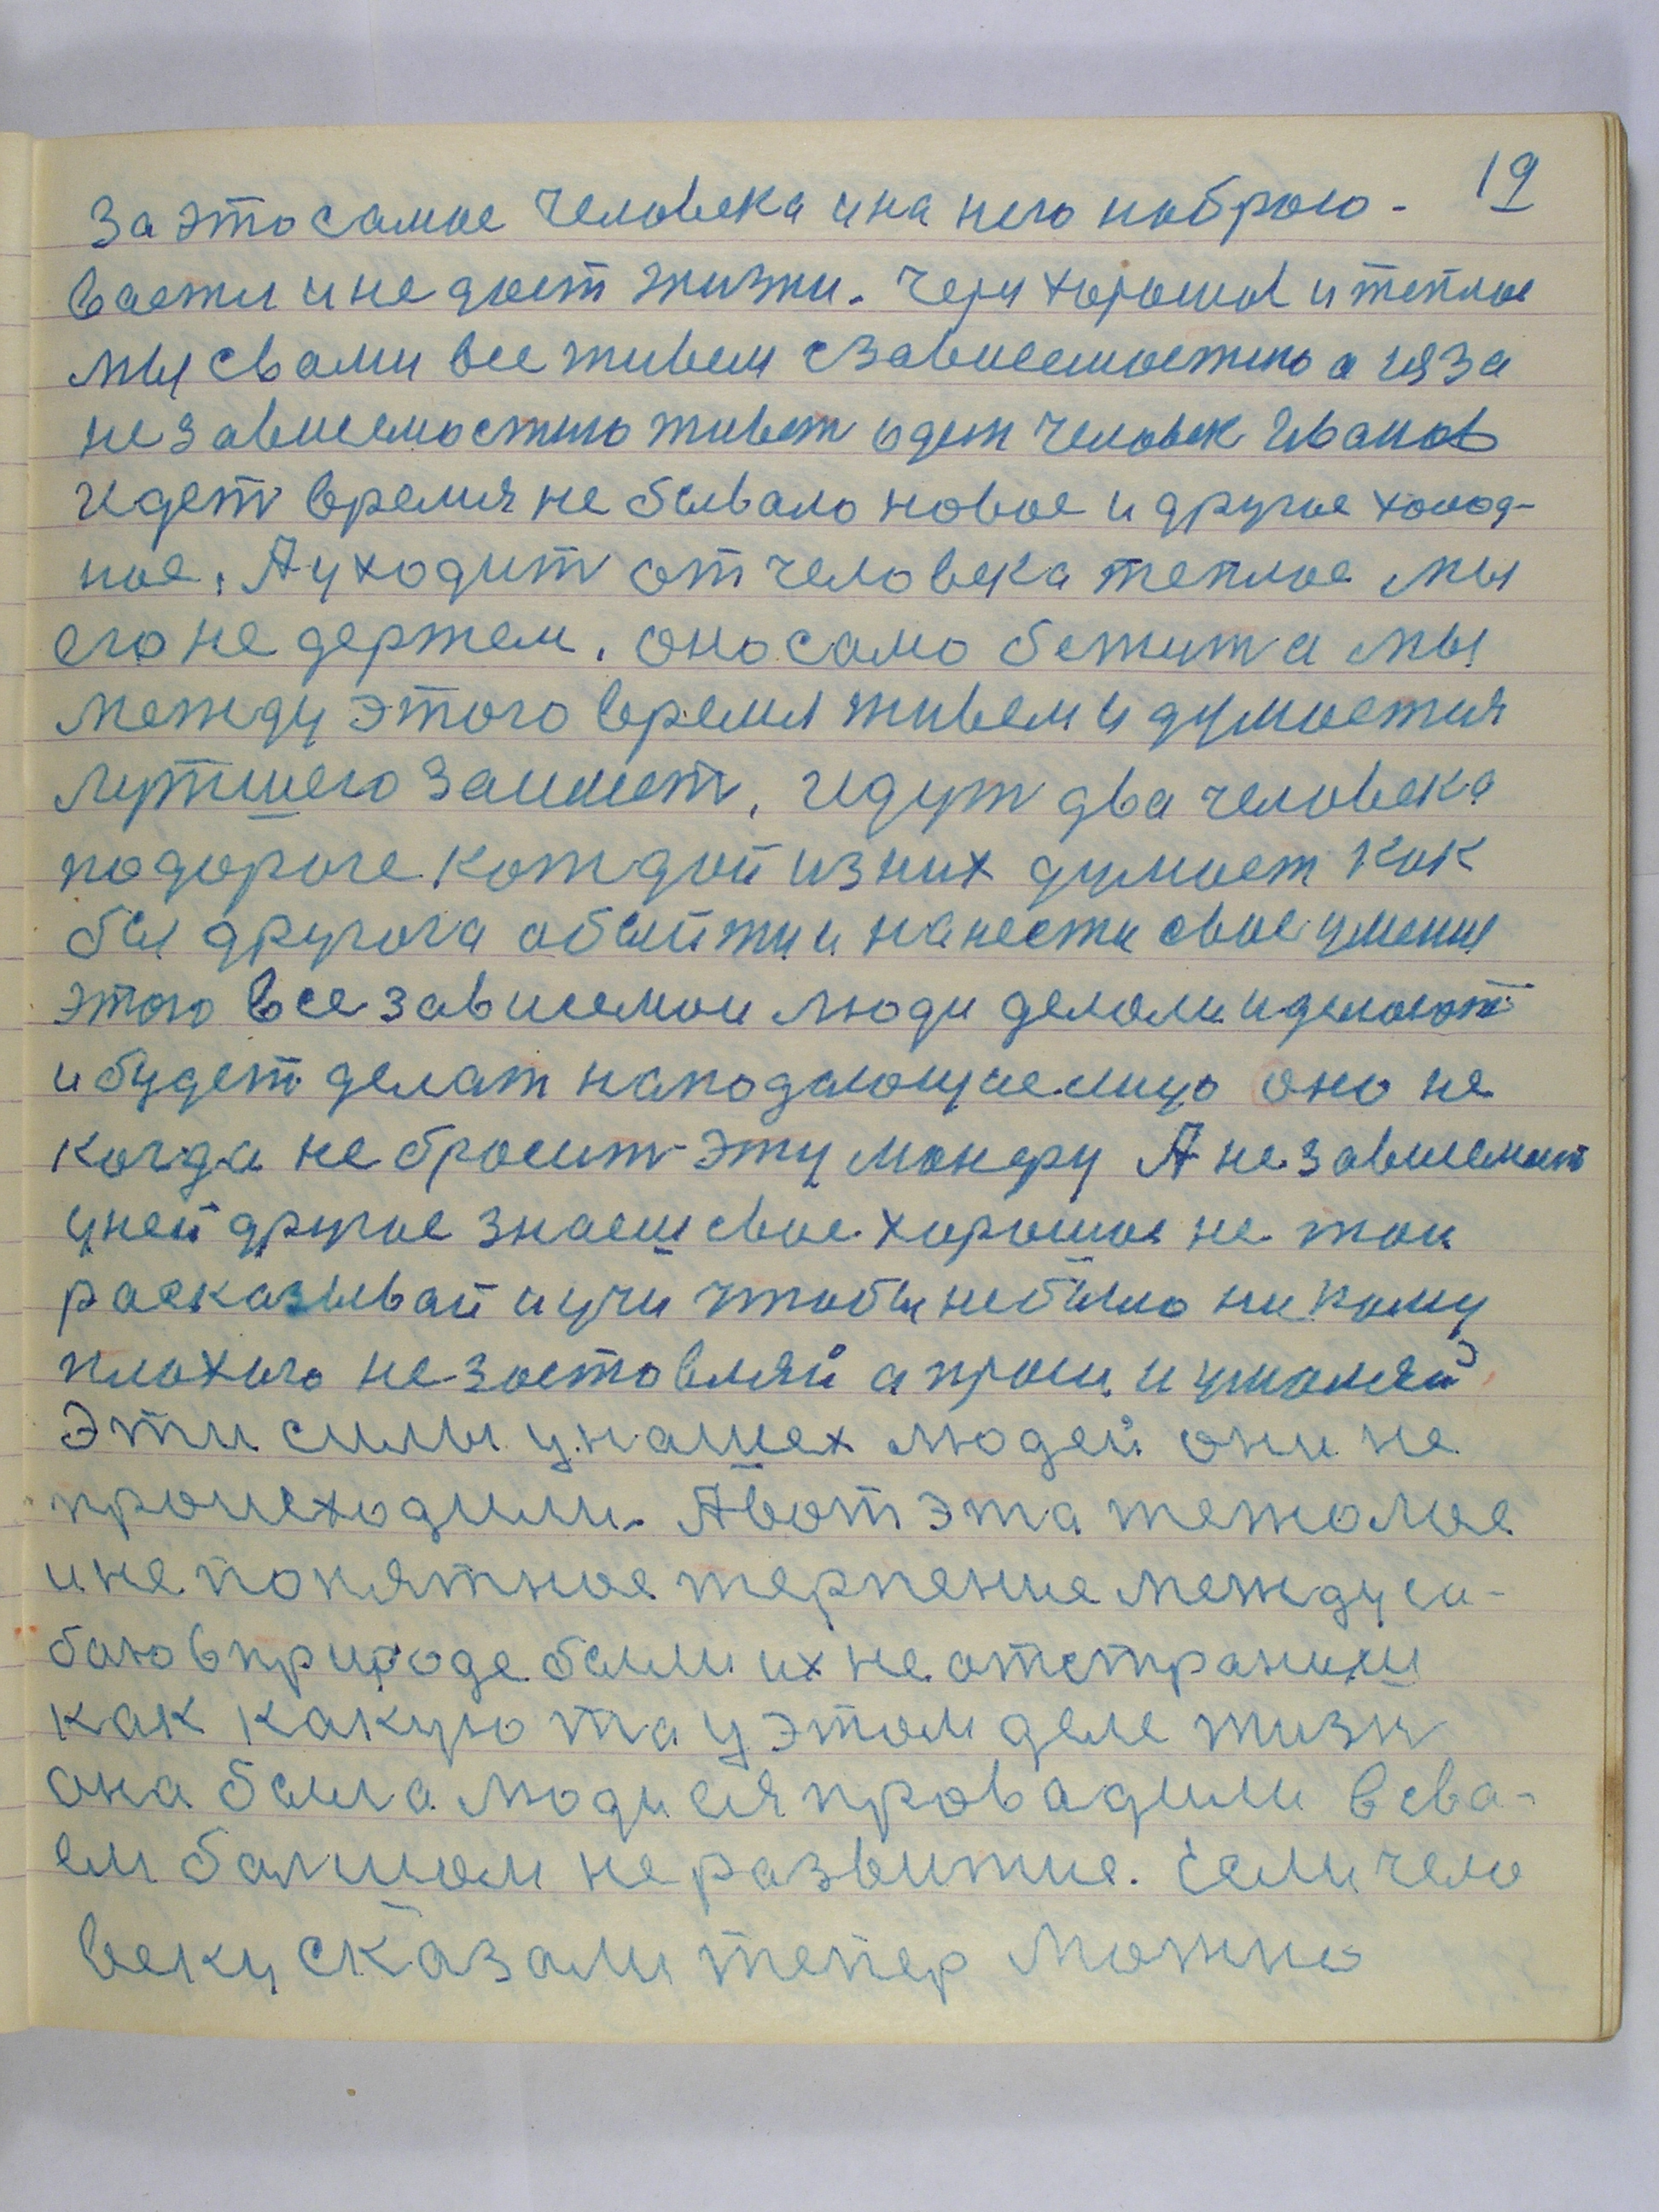 19
За это самое человека и на него наброю-
ваетси и не дает жизни. Чери хорошое и теплое
мы свами все живем сзависемостию а из за
независемостию живет один человек Иванов
Идет время не бывало новое и другое холод-
ное. А уходит от человека теплое мы
его не держем. оно само бежит а мы
между этого время живем и думается
лутшего займет. Идут два человека
подороге каждой из них думает как
бы другога обыйти и нанести свое умения
этого все зависемои люди делали и делают
и будет делат наподающие лицо оно не
когда не бросит эту манеру А независемост
уней другое знаеш свое хорошое не таи
расказывай и учи чтобы небыло никому
плохого не застовляй а проси и умоляй
Эти силы унашех людей они не
происходили. А вот эта тежолое
и не понятное терпение между са-
бою в природе были их не отстранили
как какуюта у этом деле жизн
она была люди ея провадили всва-
ем балшом неразвитие. если чело
веку сказали тепер можно